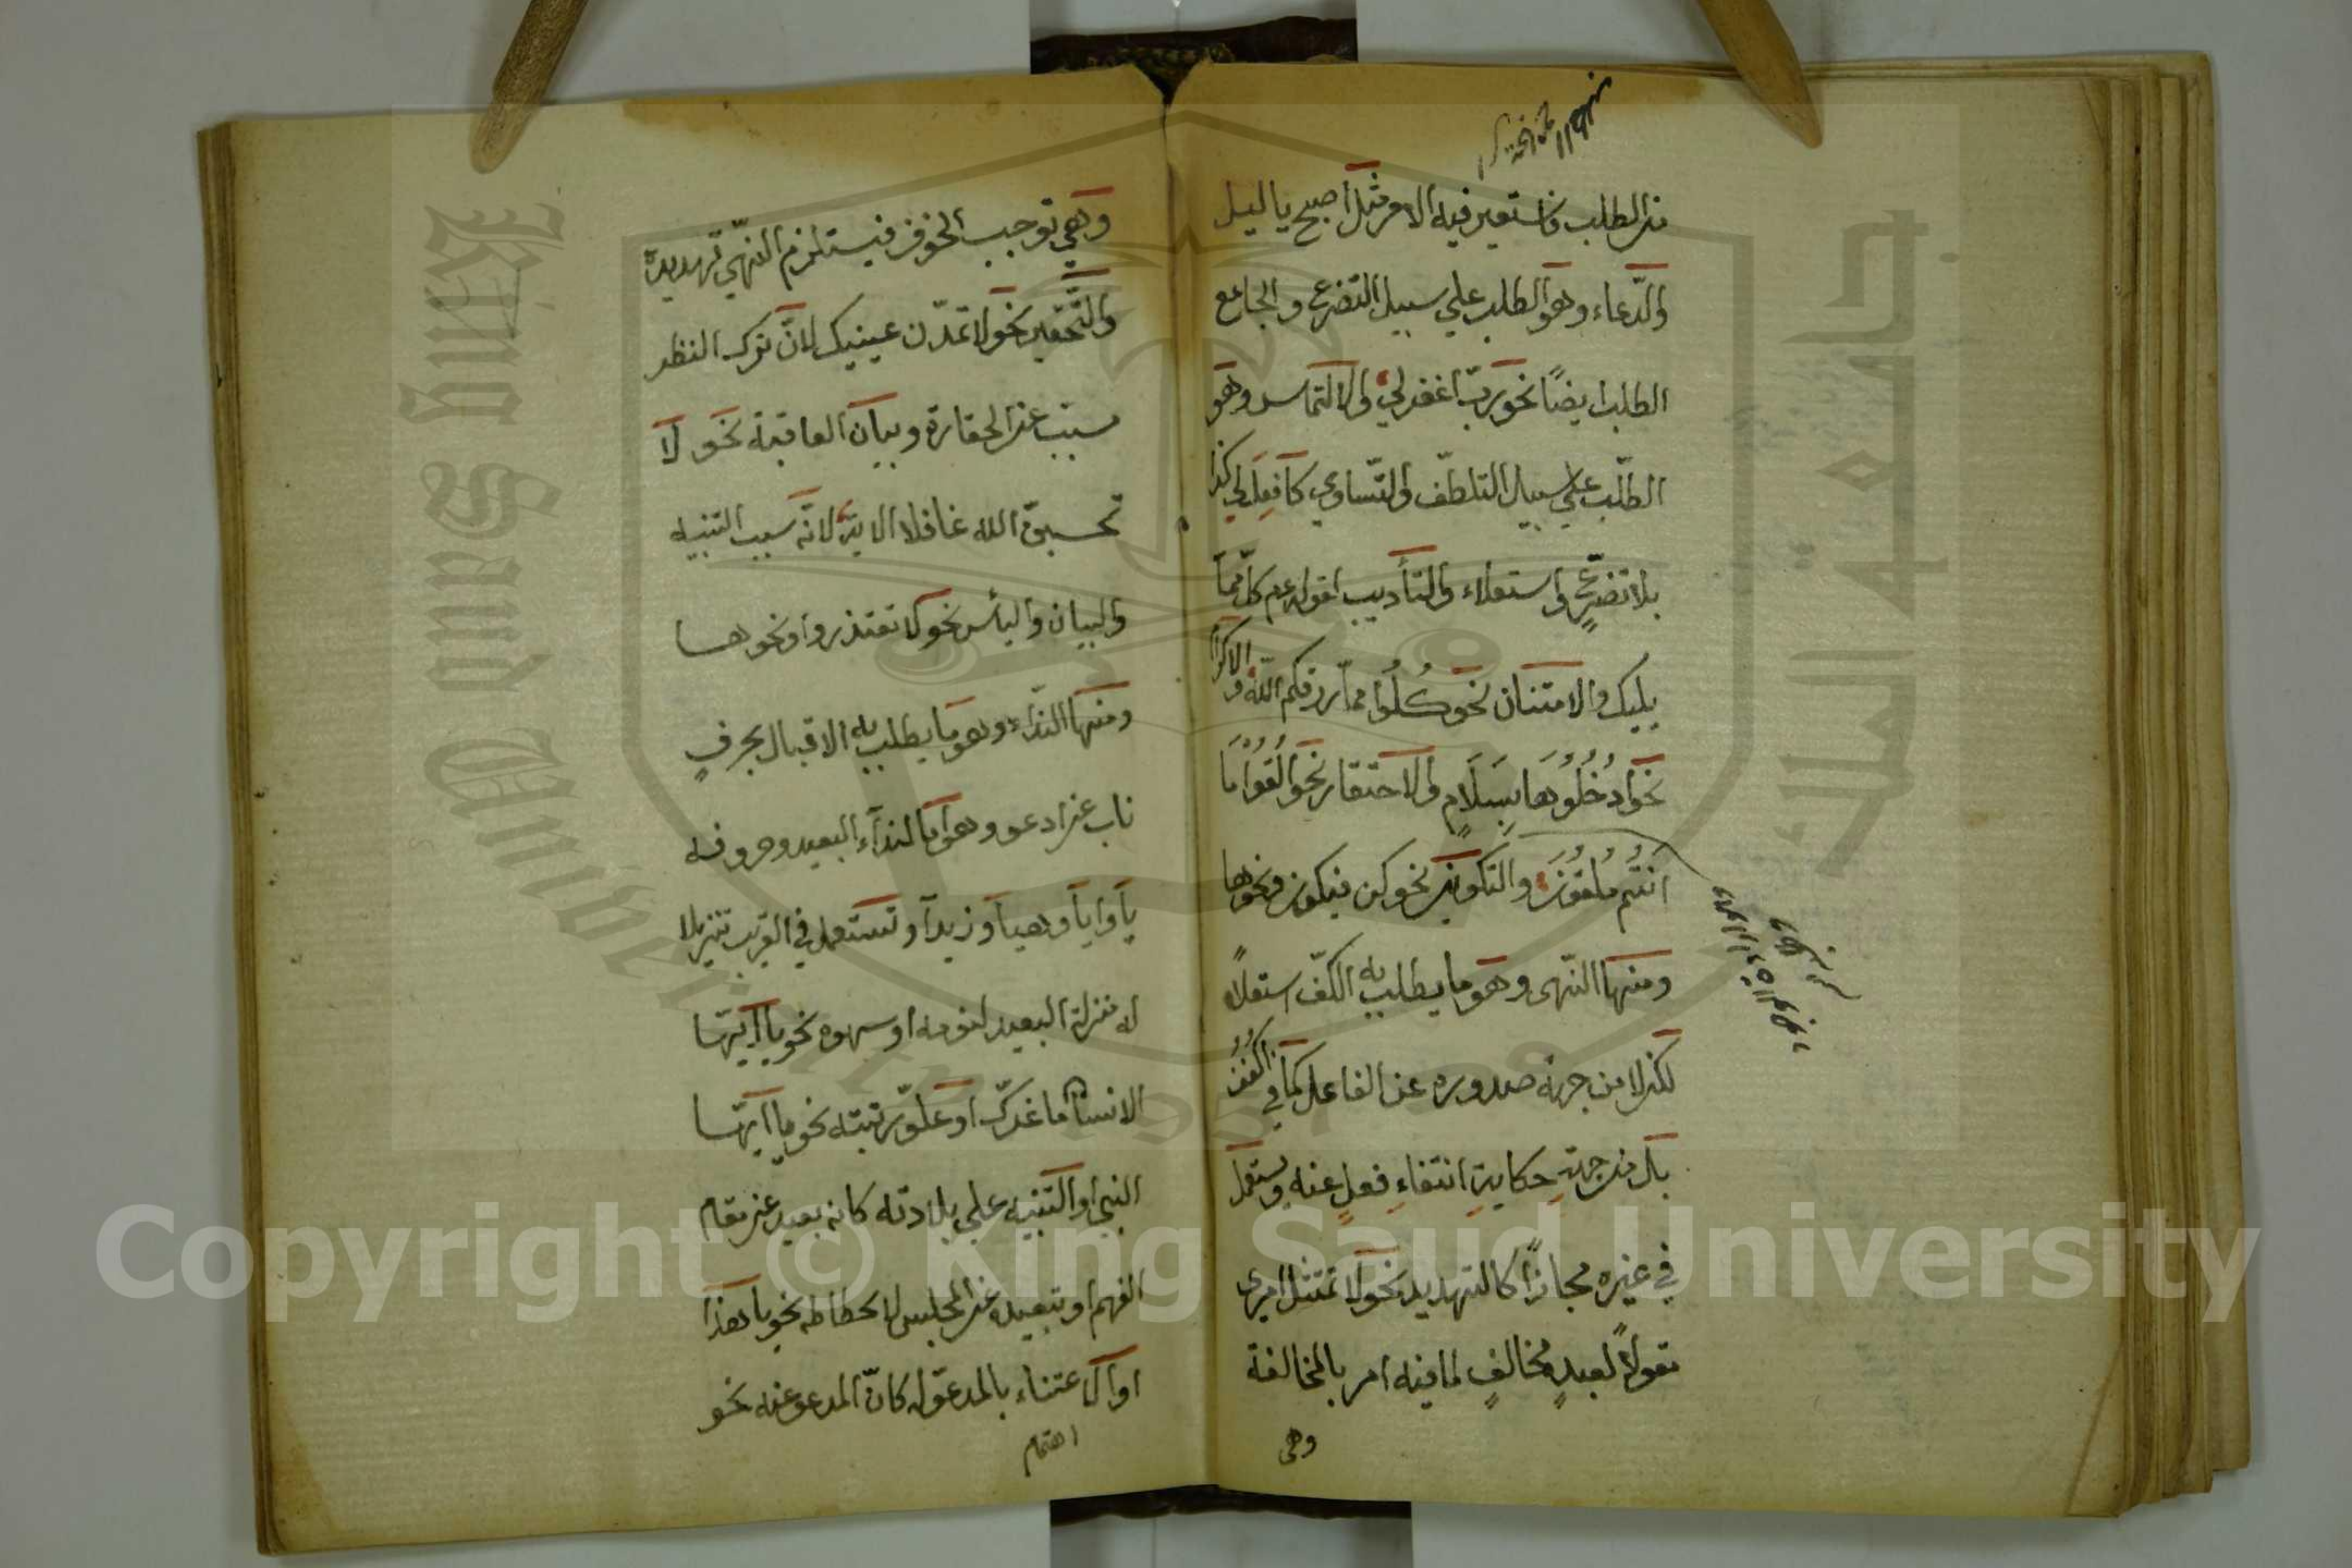 من الطلب فاستعير فيه الامر مثل اصبح يا ليل
والدّعاء وهو الطلب علي سبيل التضرع والجامع
الطلب ايضًا نحو ربّ اغفر لي والالتماس وهو
الطّلب علي سبيل التلطّف والتّساوي كافعل لي كذا
بلا تضرّعٍ واستعلاء والتأديب لقوله عم كل مما
يليك والامتنان نحو كُلُوا ممّا رزقكم اللّه والاكرام
نحو ادخُلُوهَا بِسَلَامٍ والاحتقار نحو اَلْقُوا مَا
انتُم مُلقُونَ والتكوين نحو كن فيكون ونحوها
ومنها النّهى وهو ما يطلب به الكفّ استعلاءً
لكن لا من جهة صدوره عن الفاعل كما في اكفُفْ
بل من جهةِ حكايةِ انتفاءِ فعلٍ عنه ويستعمل
في غيره مجازًا كالتهديد نحو لا تمتثل امرى
تقولاً لعبدٍ مخالفٍ لما فيه امر بالمخالفة
وهى
وهي توجب الخوف فيستلزم النّهي تهديده
والتّحقير نحو لا تمدّن عينيك لانّ ترك النظر
مسبب عن الحقارة وبيان العاقبة نحو لا
تحسبنّ الله غافلا الاية لانّه سبب التنبيه
والبيان واليأس نحو لا تعتذروا ونحوها
ومنها النّداء وهو ما يطلب به الاقبال بحرفٍ
ناب عن ادعو وهو امّا لنداء البعيد وحروفه
يا وايا وهيا وتستعمل في القريب تنزيلا
له منزلة البعيد لنومه او سهوه نحو يا ايّها
الانسان ما غرّك او علوّ رتبته نحو يا ايّها
النبي او التنبيه علي بلادته كانه بعيد عن مقام
الفهم او تبعيده عن المجلس لانحطاطه نحو يا هذا
او الاعتناء بالمدعوّ له كانّ المدعو عنه نحو
اهتمام